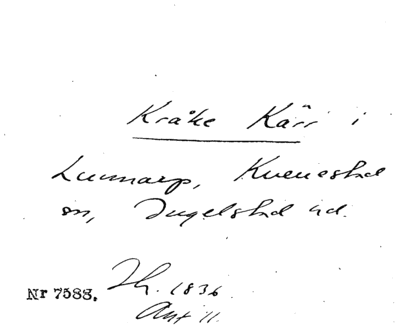 Kråke Kärr i
Lunnarp, Kvenestad
sn, Ingelstad hd.
Nr 7588. Th. 1836
Ant 11.